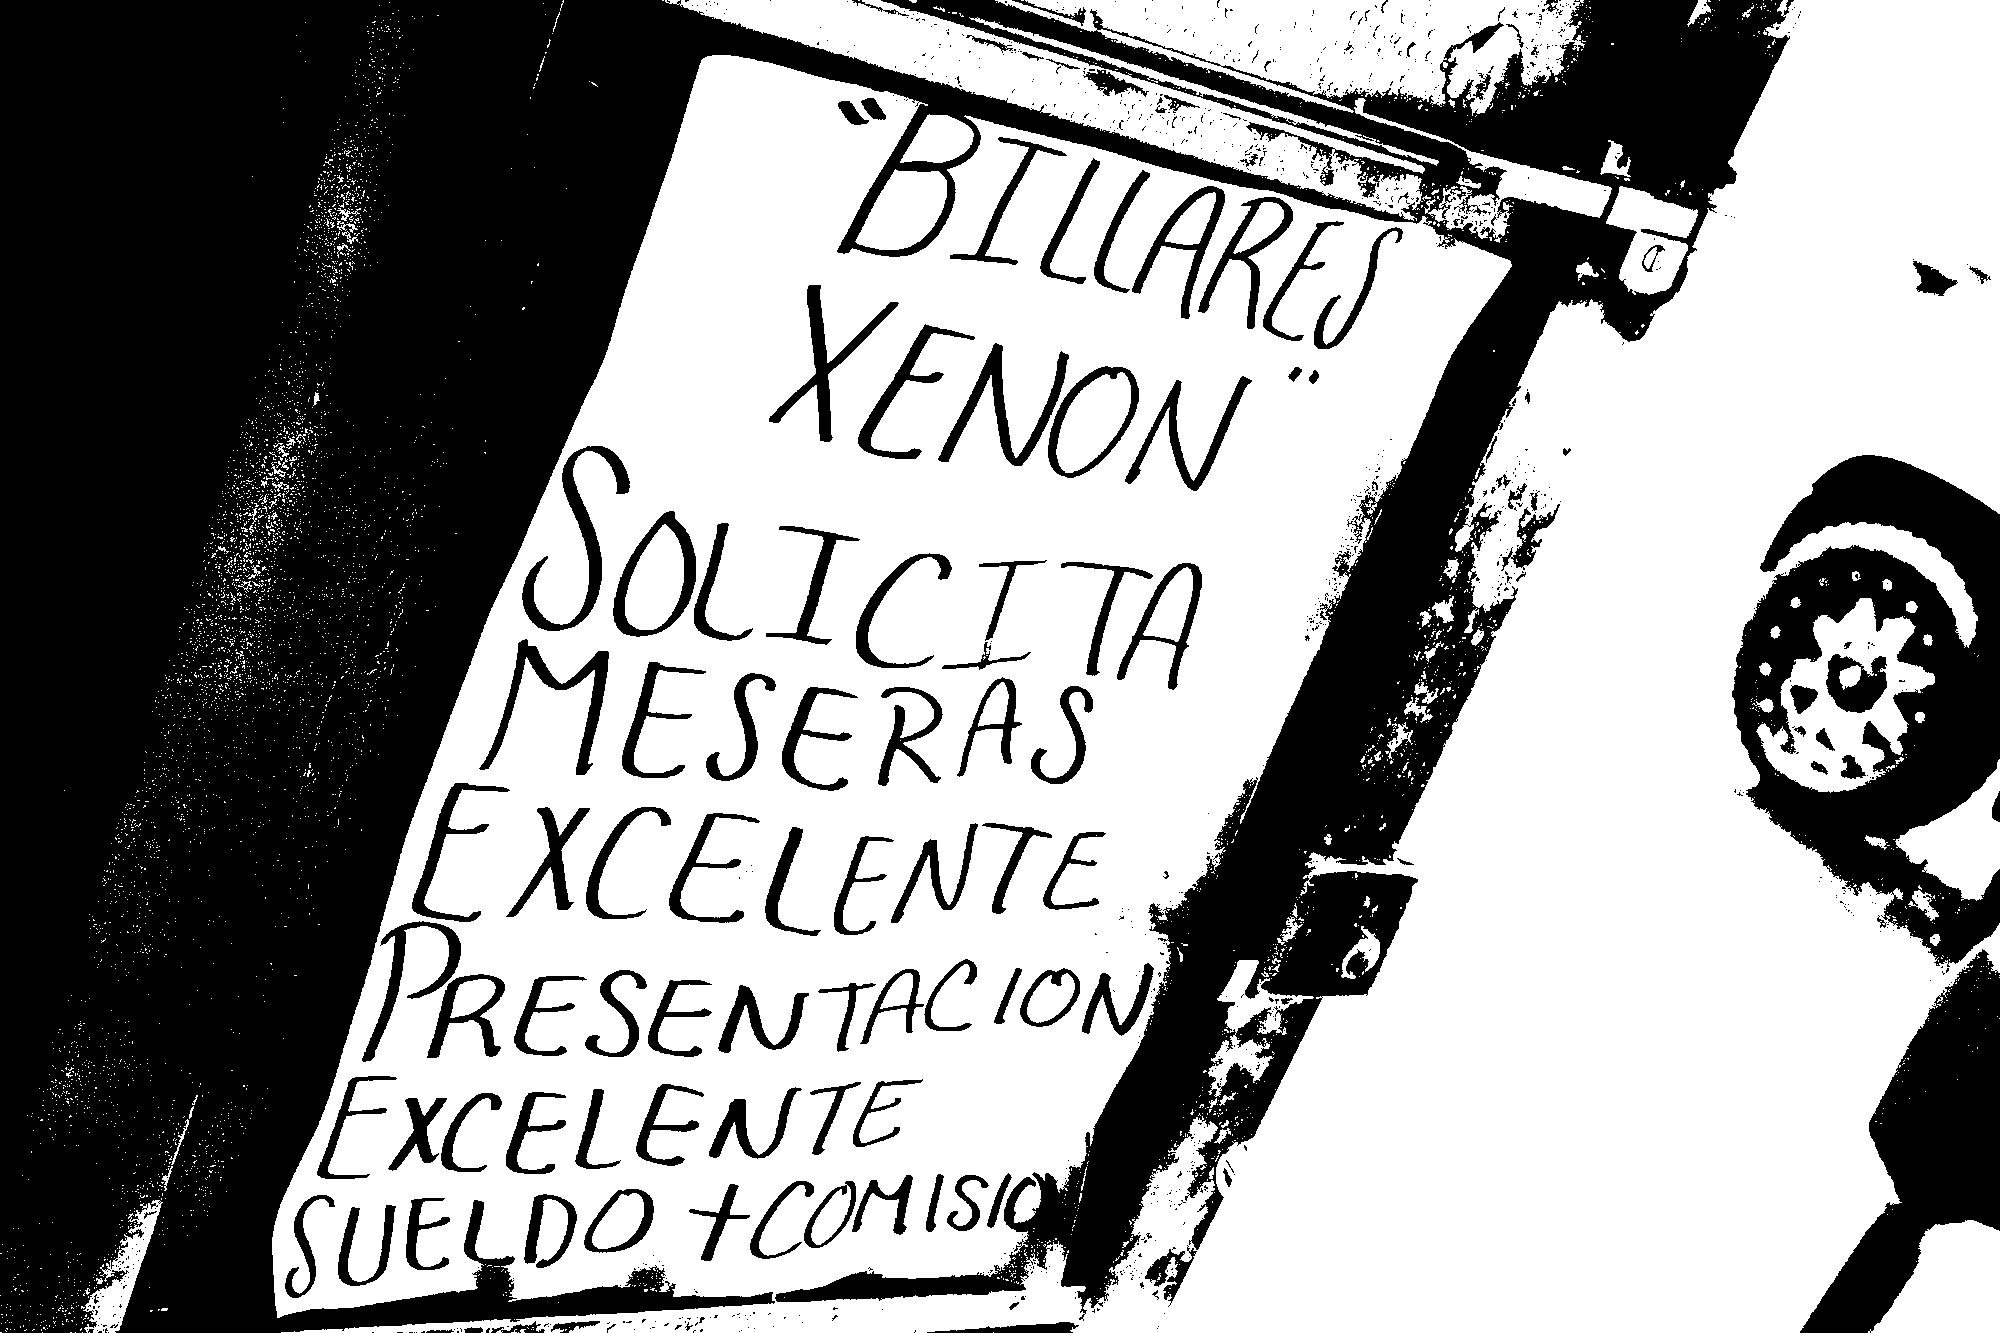 "BILLARES
XENON"
SOLICITA
MESERAS
EXCELENTE
PRESENTACION
EXCELENTE
SUELDO + COMISIO